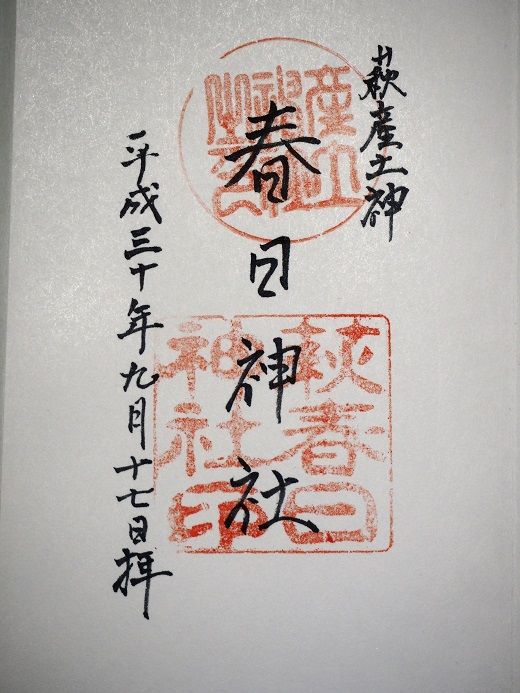 萩産土神
春日神社
平成三十年九月十七日拝
萩春日
神社印